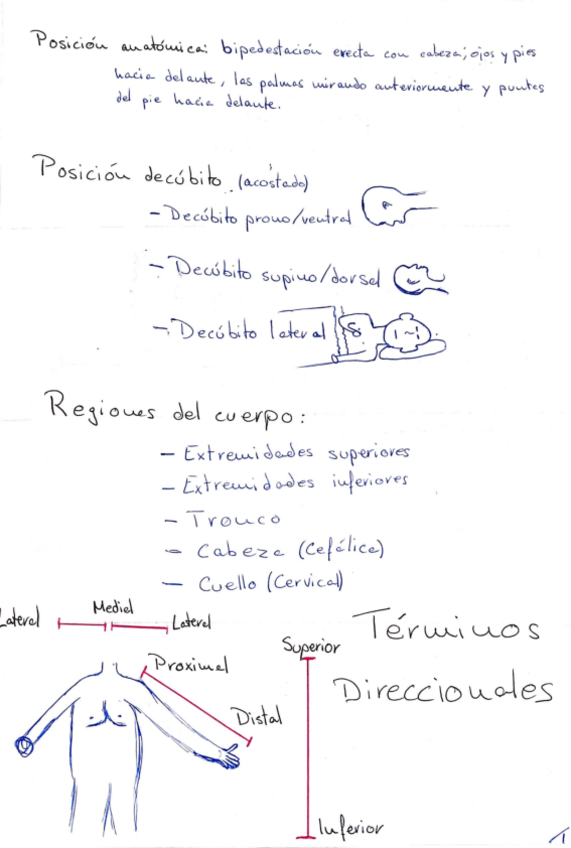 Posición anatómica: bipedestación erecta con cabeza, ojos y pies
hacia delante, las palmas mirando anteriormente y puntas
del pie hacia delante.
Posición decúbito (acostado)
- Decúbito prono/ventral
- Decúbito supino/dorsal
- Decúbito lateral
Regiones del cuerpo:
- Extremidades superiores
- Extremidades inferiores
- Tronco
- Cabeza (Cefálica)
- Cuello (Cervical)
Lateral
Medial
Lateral
Proximal
Distal
Superior
Inferior
Términos
Direccionales
1